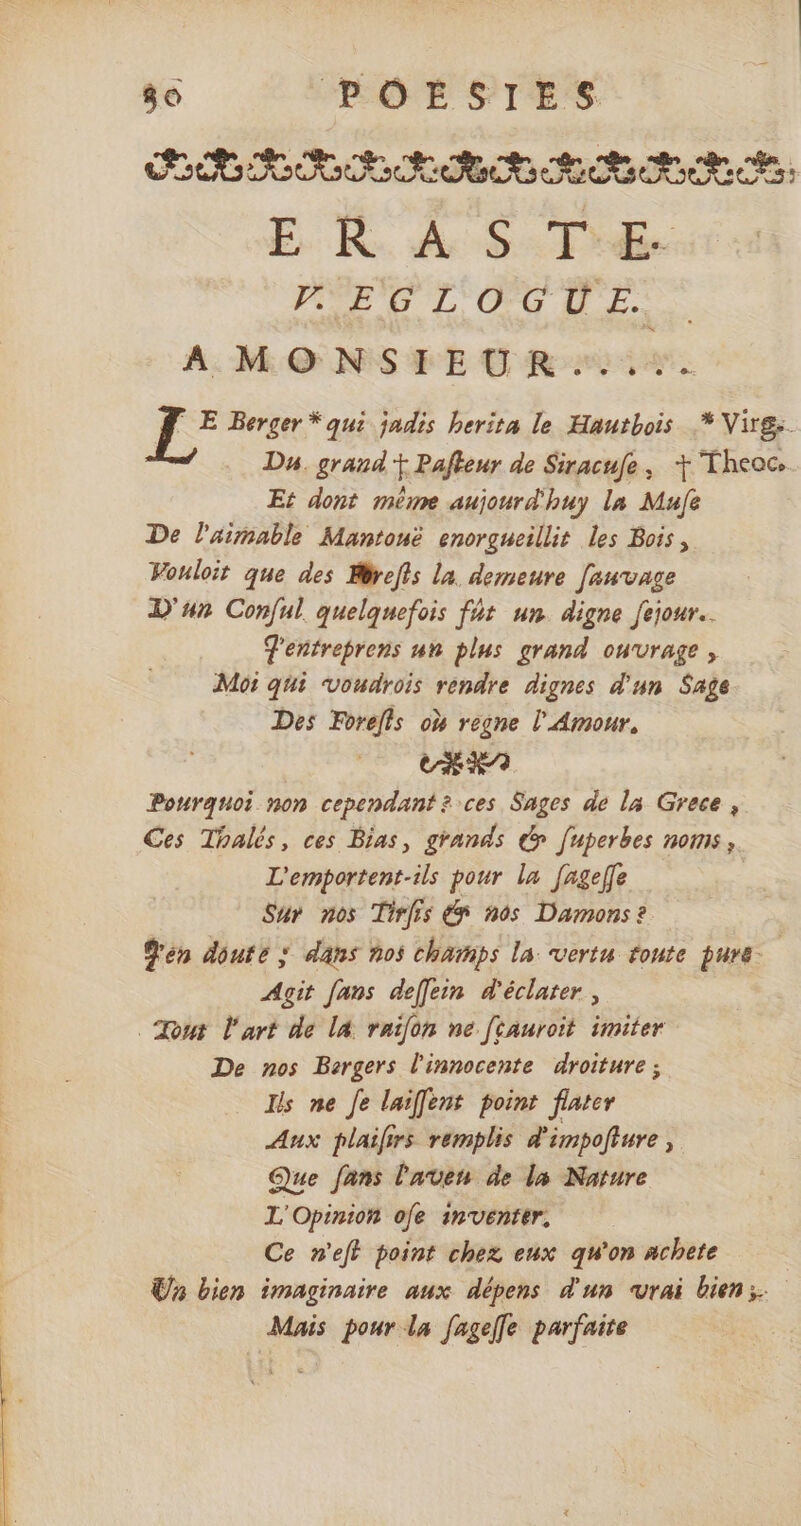 30 POESIES
ERASTE.
V. EGLOGUE.
A MONSIEUR......
LE Berger * qui jadis herita le Hautbois * Virg.
Du grand † Paſteur de Siracuſe, † Theoc.
Et dont même aujourd'huy la Muſe
De l'aimable Mantouë enorgueillit les Bois,
Vouloit que des Foreſts la demeure ſauvage
D'un Conſul quelquefois fût un digne ſejour.
J'entreprens un plus grand ouvrage,
Moi qui voudrois rendre dignes d'un Sage
Des Foreſts où regne l'Amour.
Pourquoi non cependant? ces Sages de la Grece,
Ces Thalés, ces Bias, grands & ſuperbes noms,
L'emportent-ils pour la ſageſſe
Sur nos Tirſis & nos Damons?
J'en doute; dans nos champs la vertu toute pure
Agit ſans deſſein d'éclater,
Tout l'art de la raiſon ne ſçauroit imiter
De nos Bergers l'innocente droiture;
Ils ne ſe laiſſent point flater
Aux plaiſirs remplis d'impoſture,
Que ſans l'aveu de la Nature
L'Opinion oſe inventer.
Ce n'eſt point chez eux qu'on achete
Un bien imaginaire aux dépens d'un vrai bien;
Mais pour la ſageſſe parfaite